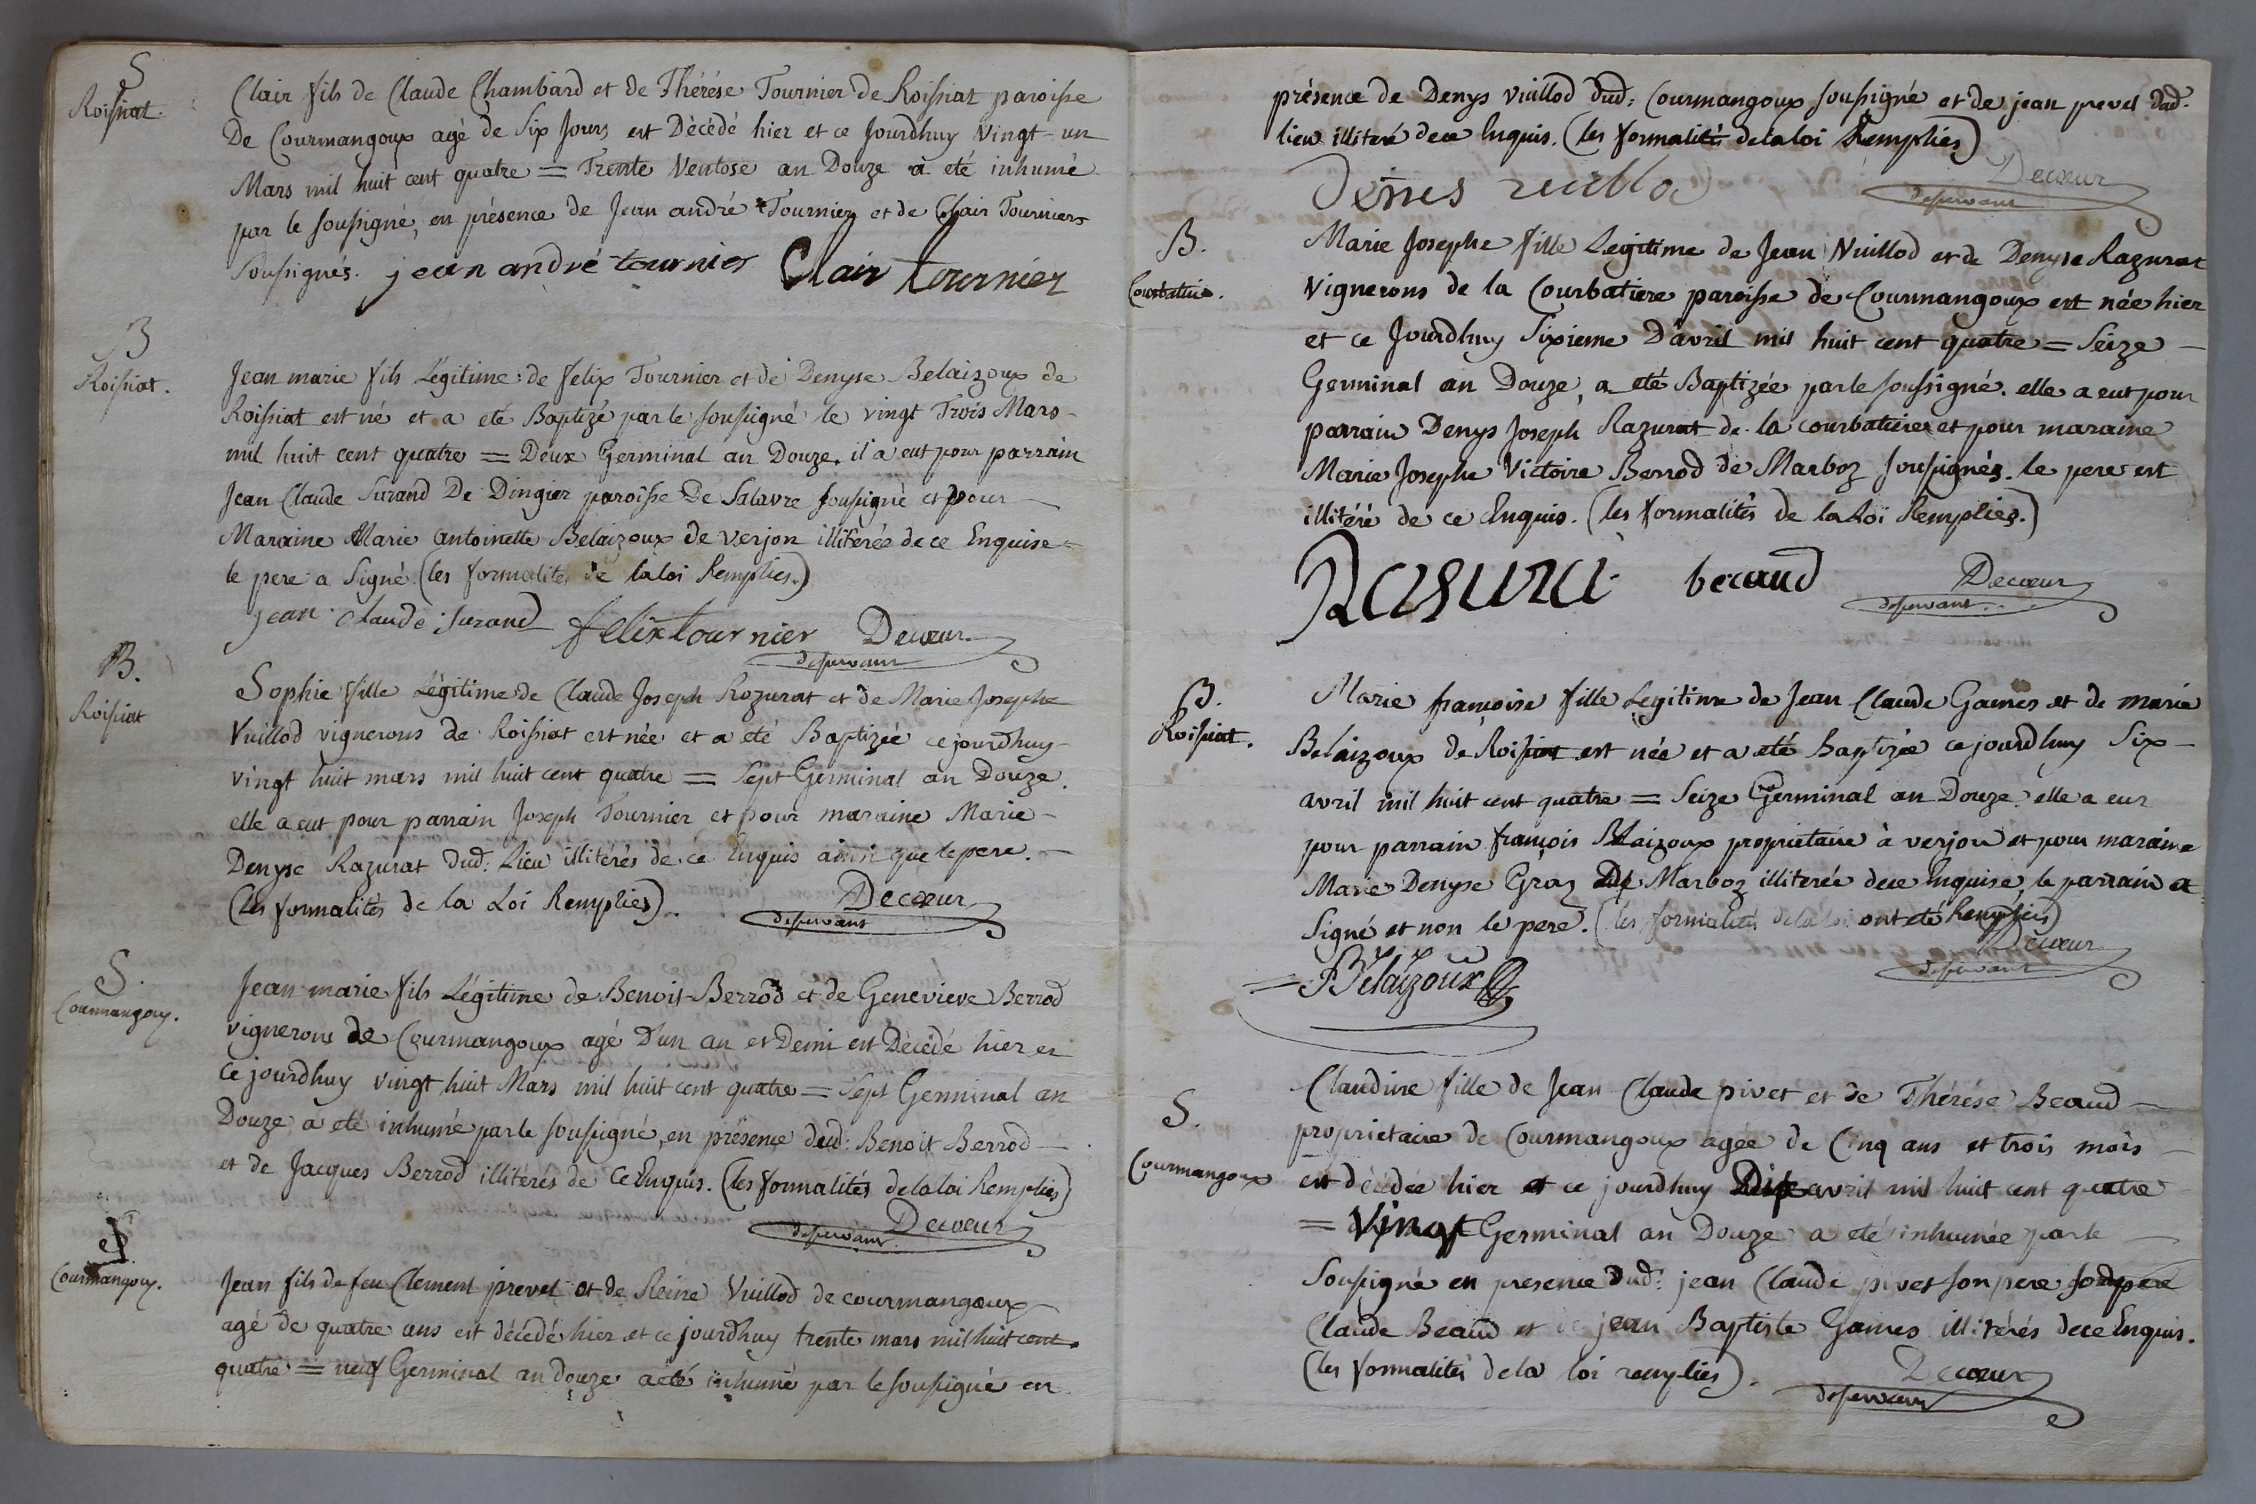 S
Roissiat.
Clair fils de Claude Chambard et de Thérése Tournier de Roissiat paroisse
De Courmangoux agé de Six Jours est Décédé hier et ce Jourdhuy Vingt-un
Mars mil huit cent quatre = Trente Ventose an Douze a eté inhumé
par le soussigné, en présence de Jean andré Tournier et de Clair Tourniers
Soussignés. jean andré tournier Clair tournier
B
Roissiat.
Jean marie fils Légitime de felix Tournier et de Denyse Belaizoux de
Roissiat est né et a eté Baptizé par le soussigné le vingt Trois Mars
mil huit cent quatre = Deux Germinal an Douze. il a eut pour parrain
Jean Claude Surand De Dingier paroisse De Salavre soussigné et pour
Maraine Marie Antoinette Belaizoux de verjon illiterée de ce Enquise
le pere a Signé. (les formalités de la loi Remplies.)
jean claude surand felix tournier Decœur
desservant
B.
Roissiat
Sophie fille Légitime de Claude Joseph Rozurat et de Marie Josephe
Vuillod vignerons de Roissiat est née et a eté Baptizée ce jourdhuy
vingt huit mars mil huit cent quatre = Sept Germinal an Douze.
elle a eut pour parrain Joseph Tournier et pour maraine Marie
Denyse Razurat dud: Lieu illitérés de ce Enquis ainsi que le pere.
(les formalités de la Loi Remplies). Decœur
desservant
S.
Courmangoux.
Jean marie fils Légitime de Benoit Berrod et de Genevieve Berrod
vignerons de Courmangoux agé D'un an et Demi est Décédé hier et
ce jourdhuy vingt huit Mars mil huit cent quatre = Sept Germinal an
Douze a eté inhumé par le soussigné, en présence dud: Benoit Berrod
et de Jacques Berrod illitérés de Ce Enquis. (les formalités de la loi Remplies)
Decœur
desservant
S
Courmangoux.
Jean fils de feu Clement prevet et de Reine Vuillod de courmangoux
agé de quatre ans est décédé hier et ce jourdhuy trente mars mil huit cent
quatre = neuf Germinal an douze a eté inhumé par le soussigné en
présence de Denys vuillod dud: Courmangoux soussigné et de jean prevet dud.
lieu illiteré de ce Enquis. (les formalités de la loi Remplies)
Decœur
desservant
B.
Courbatiere.
Marie Josephe fille Legitime de Jean Vuillod et de Denyse Razurat
Vignerons de la Courbatiere paroisse de Courmangoux est née hier
et ce Jourdhuy Sixieme D'avril mil huit cent quatre = Seize
Germinal an Douze, a eté Baptizée par le soussigné. elle a eut pour
parrain Denys Joseph Razurat de la courbatiere et pour maraine
Marie Josephe Victoire Berrod de Marboz soussignés. le pere est
illitéré de ce Enquis. (les formalités de la Loi Remplies.)
Decœur
desservant
B.
Roissiat.
Marie françoise fille Legitime de Jean Claude Games et de marie
Belaizoux de Roissiat est née et a eté Baptizée ce jourdhuy Six
avril mil huit cent quatre = Seize Germinal an Douze. elle a eut
pour parrain françois Blaizoux proprietaire à verjon et pour maraine
Marie Denyse Gras De Marboz illiterée de ce Enquise, le parrain a
Signé et non le pere. (les formalités de la loi ont eté Remplies)
Decœur
desservant
= Bélaizoux
S.
Courmangoux
Claudine fille de Jean Claude pivet et de Thérése Beaud
proprietaire de Courmangoux agée de Cinq ans et trois mois
est décédée hier et ce jourdhuy Dix avril mil huit cent quatre
= Vingt Germinal an Douze a eté inhumée par le
Soussigné en presence dud: jean Claude pivet son pere son pere
Claude Beaud et de jean Baptiste Games illitérés de ce Enquis.
(les formalités de la loi remplies). Decœur
desservant